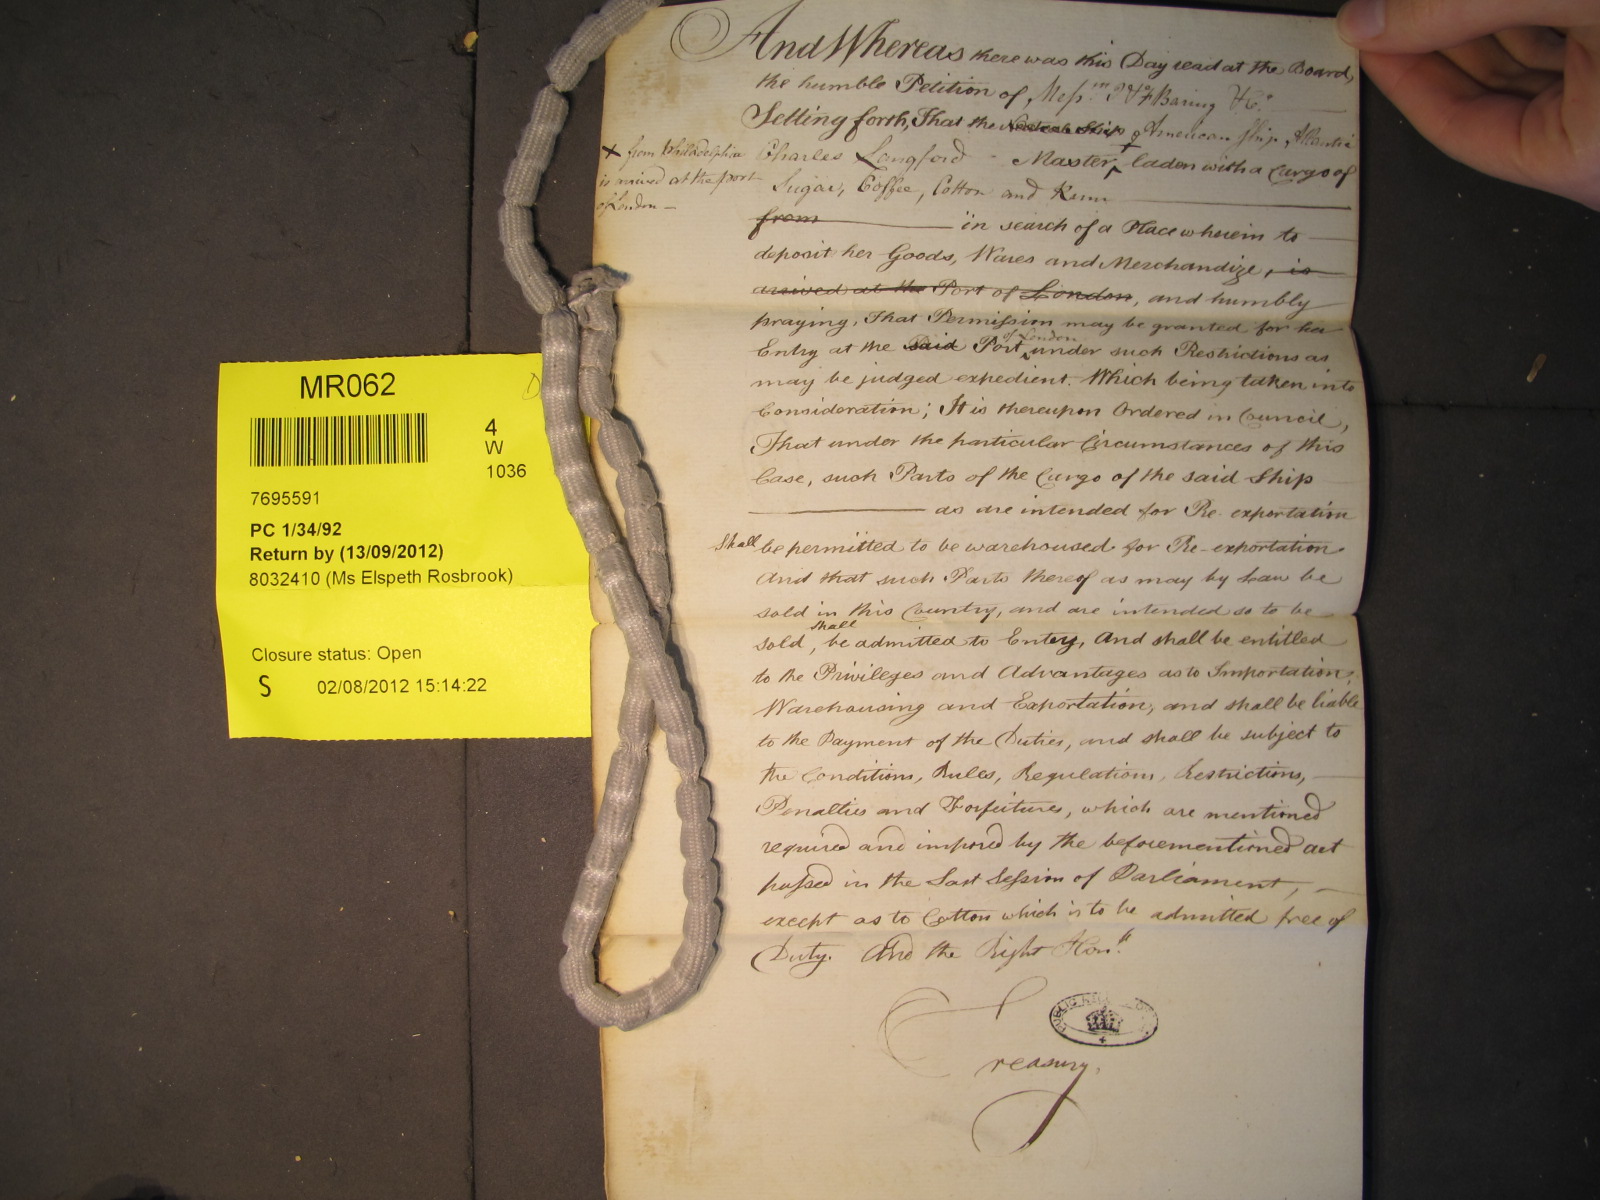 And Whereas there was this Day read at the Board,
the humble Petition of Mess.rs J & F Baring & Co.
Setting forth, That the Neutral Ship American Ship Atlantic
Charles Langford - Master, laden with a Cargo of
x from Philadelphia
is arrived at the port
of London -
Sugar, Coffee, Cotton and Rum
from in search of a Place wherein to
deposit her Goods, Wares and Merchandize, is
arrived at the Port of London, and humbly
praying, That Permission may be granted for her
Entry at the said Port of London under such Restrictions as
may be judged expedient. Which being taken into
Consideration; It is thereupon Ordered in Council,
That under the particular Circumstances of this
Case, such Parts of the Cargo of the said Ship
as are intended for Re-exportation
shall be permitted to be warehoused for Re-exportation
And that such Parts thereof as may by Law be
sold in this Country, and are intended so to be
sold, shall be admitted to Entry, And shall be entitled
to the Privileges and Advantages as to Importation,
Warehousing and Exportation, and shall be liable
to the Payment of the Duties, and shall be subject to
the Conditions, Rules, Regulations, Restrictions,
Penalties and Forfeitures, which are mentioned
required and imposed by the beforementioned act
passed in the Last Session of Parliament,
except as to Cotton which is to be admitted free of
Duty. And the Right Hon.
Treasury.
MR062
4
W
1036
7695591
PC 1/34/92
Return by (13/09/2012)
8032410 (Ms Elspeth Rosbrook)
Closure status: Open
S 02/08/2012 15:14:22